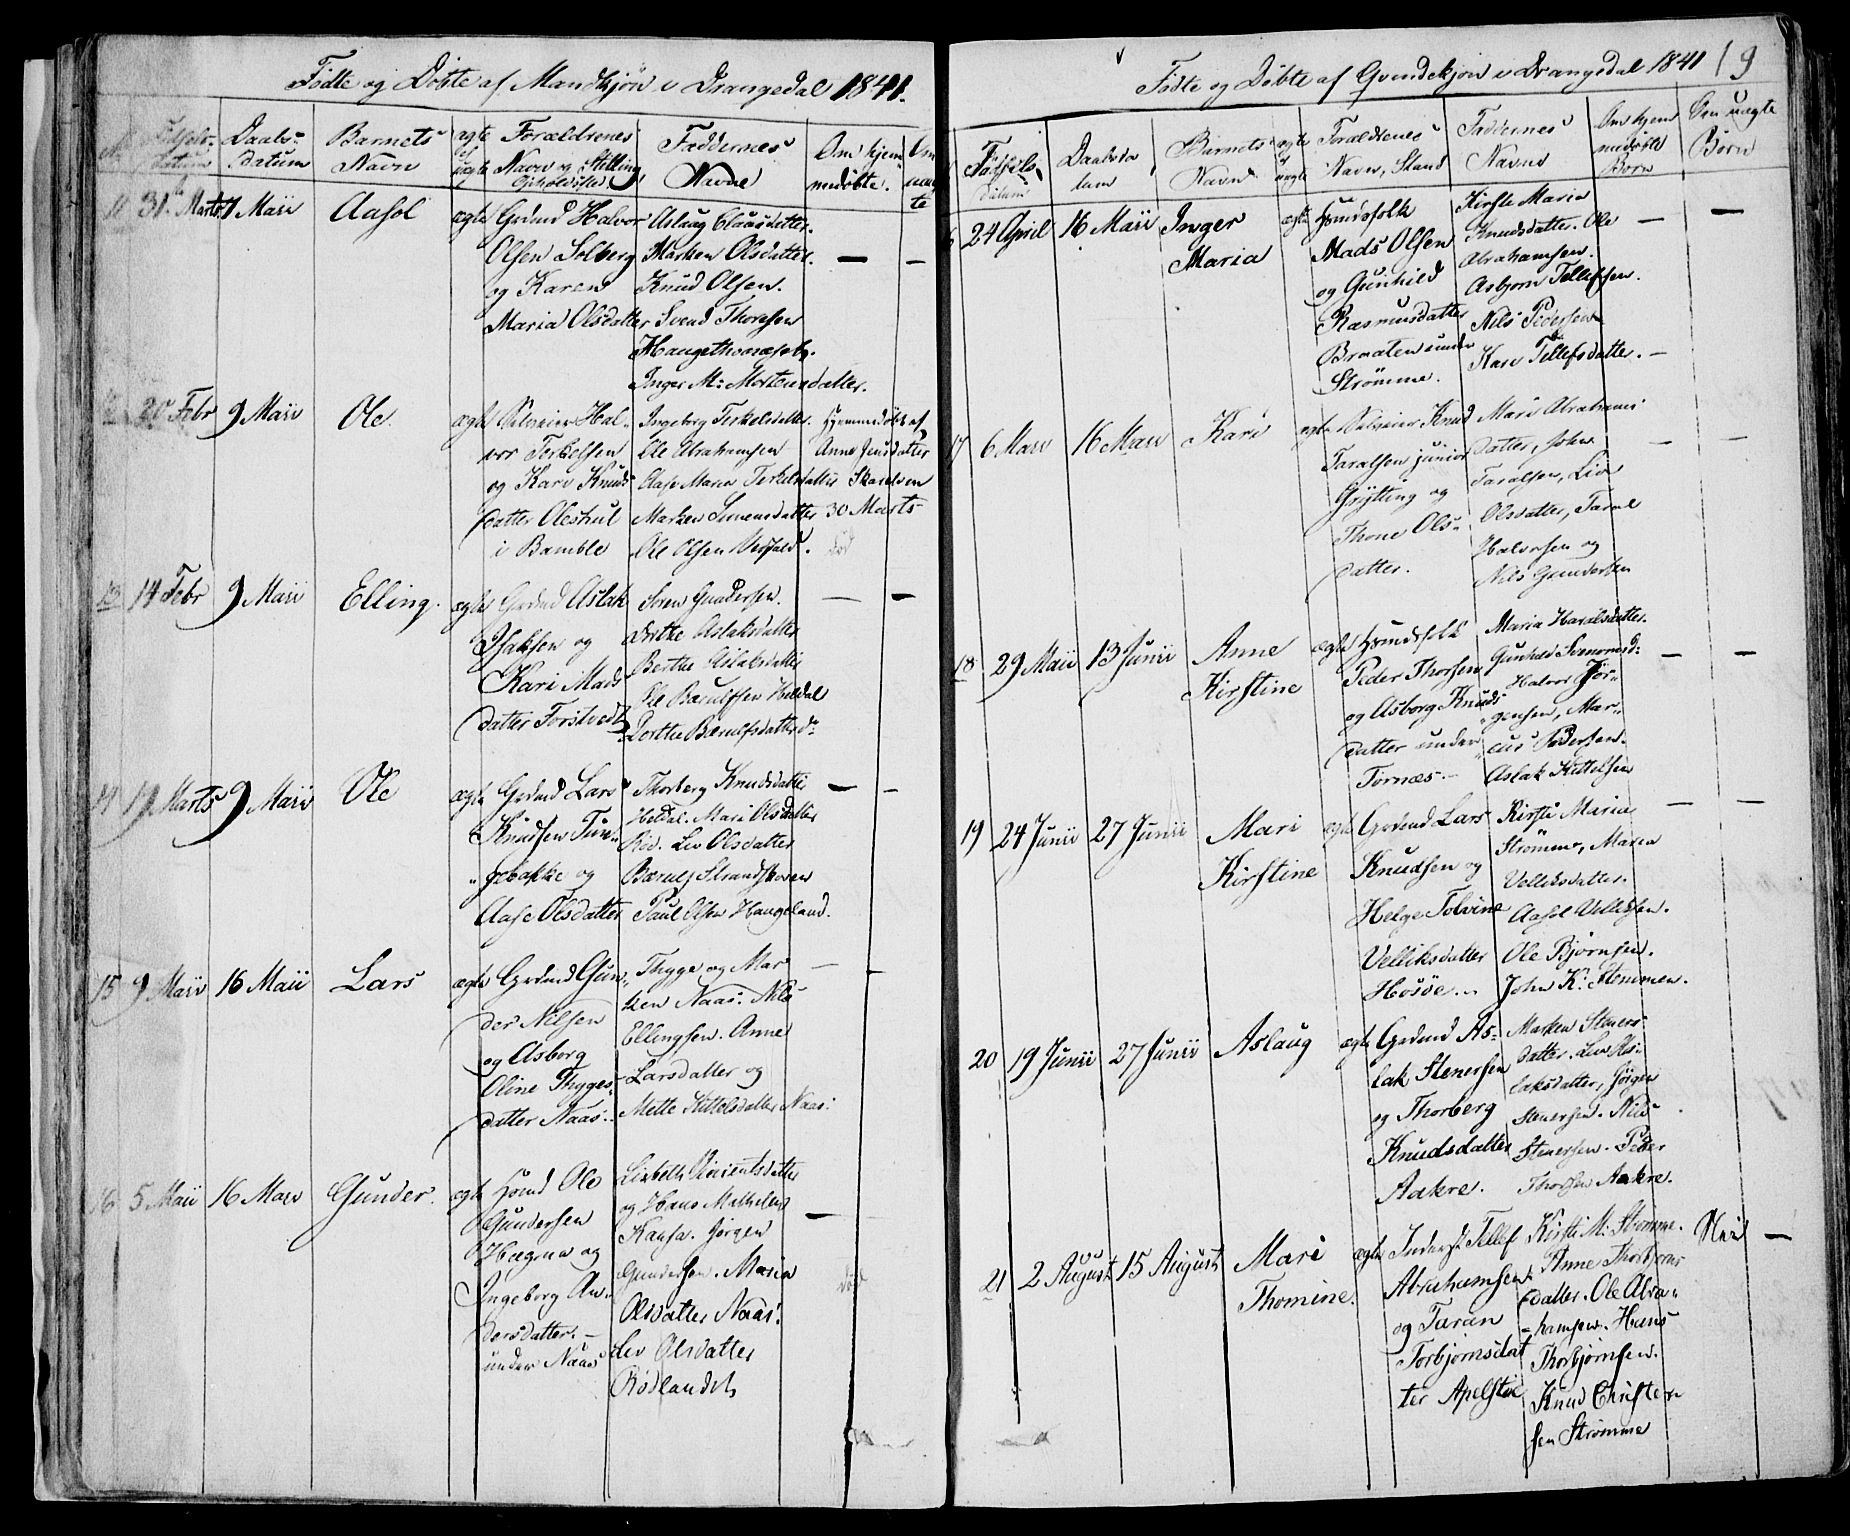 Fødte og Døbte af Mandkjøn i Drangedal 1841.
Daabs-
datum
Barnets
Navn
ægte
uægte
Forældrenes
Navn og Stilling
Faddernes
Navne
Om hjem
medøbte.
Om
uæg
te
11 31 Marts 1 Maii Aasol ægte Grdmd Halvor
Olsen Solberg
og Karen
Maria Olsdatter
Aslaug Claasdatter.
Marken Olsdatter.
Knud Olsen.
Svend Thorsen
Inger M: Mortensdatter.
— —
12 20 Febr 9 Maii Ole ægte Hal-
vor Terkelsen
og Kari Knuds
datter Oleshul
i Bamble
Ingeborg Terkelsdatter.
Ole Abrahamsen
Aase Maria Terkelsdatter
Marken Simensdatter
Ole Olsen
Hjemmedøbt af
Anne Jensdatter
30 Marts
død
13 14 Febr 9 Maii Elling. ægte Grdmd Aslak
Isaksen og
Kari Mads
datter Torstvedt
Søren Gundersen.
Dorthe Aslaksdatter
Berthe Aslaksdatter
Ole Bærulfsen Heldal
Dorthe Bærulfsdatter do
— —
14 19 Marts 9 Maii Ole ægte Grdmd Lars
Knudsen Tun-
gebakke og
Aase Olsdatter
Thorberg Knudsdatter
Heldal. Mari Olsdatter
Rød. Liv Olsdatter
Bærulf Strandskoven
Paul Olsen Haugeland.
— —
15 9 Maii 16 Maii Lars ægte Grdmd Gun-
der Nilsen
og Asborg
Oline Thygges-
datter Naas.
Thygge og Mar
ken Naas. Nils
Ellingsen. Anne
Larsdatter og
Mette Kittelsdatter Naas:
— —
16 5 Maii 16 Maii Gunder. ægte Hsmd Ole
Gundersen
Hægna og
Ingeborg An-
dersdatter. —
under Naas
Lisbeth
og Hans Mathias
Jørgen
Gundersen. Maria
Olsdatter Naas.
Liv Olsdatter
Rødlandet
—
død
Fødte og Døbte af Qvindekjøn i Drangedal 1841 19
Fødsels
datum
Daabsda
tum
Barnets
Navn
ægte
uægte
Forældrenes
Navn, Stand
Faddernes
Navne
Om hjem
medøbte
Børn
Om uægte
Børn
24 April 16 Maii Inger
Maria
ægte Hsmdsfolk
Mads Olsen
og Gunhild
Rasmusdatter
Braaten under
Strømme.
Kirste Maria
Knudsdatter. Ole
Abrahamsen.
Asbjørn Tellefsen.
Nils Pedersen
Kari Tellefsdatter. —
— —
17 6 Maii 16 Maii Kari ægte Knud
Taralsen junior
Grytting og
Thone Ols-
datter.
Mari Abrahams
datter, John
Taralsen, Liv
Olsdatter, Taral
Halvorsen og
Nils Gundersen
— —
18 29 Maii 13 Junii Anne
Kirstine
ægte Hsmdsfolk
Peder Thorsen
og Asborg Knuds
datter under
Tornæs. —
Maria Haralsdatter.
Gunhild
Halvor Jør-
gensen, Mar-
cus Pedersen.
Aslak Kittelsen
— —
19 24 Junii 27 Junii Mari
Kirstine
ægte Grdmd Lars
Knudsen og
Helge Tolvine
Velliksdatter
Høsøe. —
Kirsti Maria
Strømme, Maren
Velliksdatter.
Aasol Velliksen.
Ole Bjørnsen.
John K: Stemmen.
— —
20 19 Junii 27 Junii Aslaug ægte Grdmd As-
lak Stenersen
og Thorberg
Knudsdatter
Aakre.
Marken Steners
datter. Liv As-
laksdatter, Jørgen
Stenersen. Nils
Stenersen. Peder
Thorsen Aakre.
21 2 August 15 August Mari
Thomine.
ægte Inderst Tellef
Abrahamsen
og Taran
Torbjørnsdat
ter Apelstøe
Kirsti M: Strømme.
Anne Thorbjørns
datter. Ole Abra-
hamsen. Hans
Thorbjørnsen.
Knud Christen
sen Strømme
Nei —